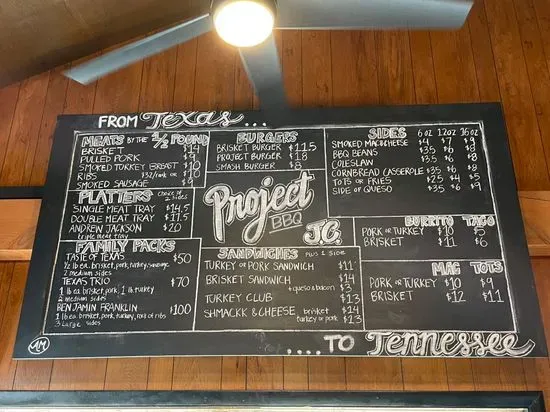 FROM Texas....
MEATS BY THE 1/2 POUND
BRISKET $14
PULLED PORK $9
SMOKED TURKEY BREAST $10
RIBS $32/rack or $10
SMOKED SAUSAGE $9
PLATTERS choice of 2 sides
SINGLE MEAT TRAY $14.5
DOUBLE MEAT TRAY $17.5
ANDREW JACKSON $20
triple meat tray
FAMILY PACKS
TASTE OF TEXAS $50
1/2 lb ea. brisket, pork, turkey, sausage
2 medium sides
TEXAS TRIO $70
1 lb ea. brisket, pork, 1 lb turkey
2 medium sides
BENJAMIN FRANKLIN $100
1 lb ea. brisket, pork, turkey, rack of ribs
3 Large sides
BURGERS
BRISKET BURGER $11.5
PROJECT BURGER $18
SMASH BURGER $8
Project
BBQ
J.C.
SANDWICHES PLUS 1 SIDE
TURKEY OR PORK SANDWICH $11
BRISKET SANDWICH $14
+queso & bacon $3
TURKEY CLUB $13
SHMACKK & CHEESE brisket $14
turkey or pork $13
SIDES 6 oz 12oz 16 oz
SMOKED MAC&CHEESE $4 $7 $9
BBQ BEANS $3.5 $6 $8
COLESLAW $3.5 $6 $8
CORNBREAD CASSEROLE $3.5 $6 $8
TOTS OR FRIES $2.5 $4 $5
SIDE OF QUESO $3.5 $6 $9
BURRITO TACO
PORK OR TURKEY $10 $5
BRISKET $11 $6
MAC TOTS
PORK OR TURKEY $10 $9
BRISKET $12 $11
....TO Tennessee